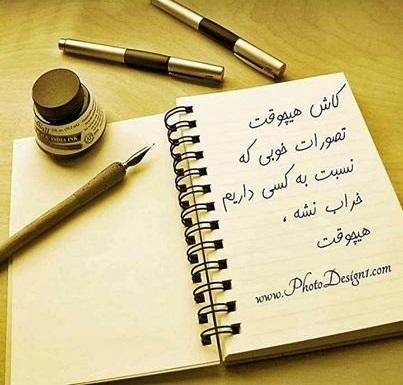 کاش هیچوقت
تصورات خوبی که
نسبت به کسی داریم
خراب نشه ،
هیچوقت
www.PhotoDesign1.com
INDIA INK